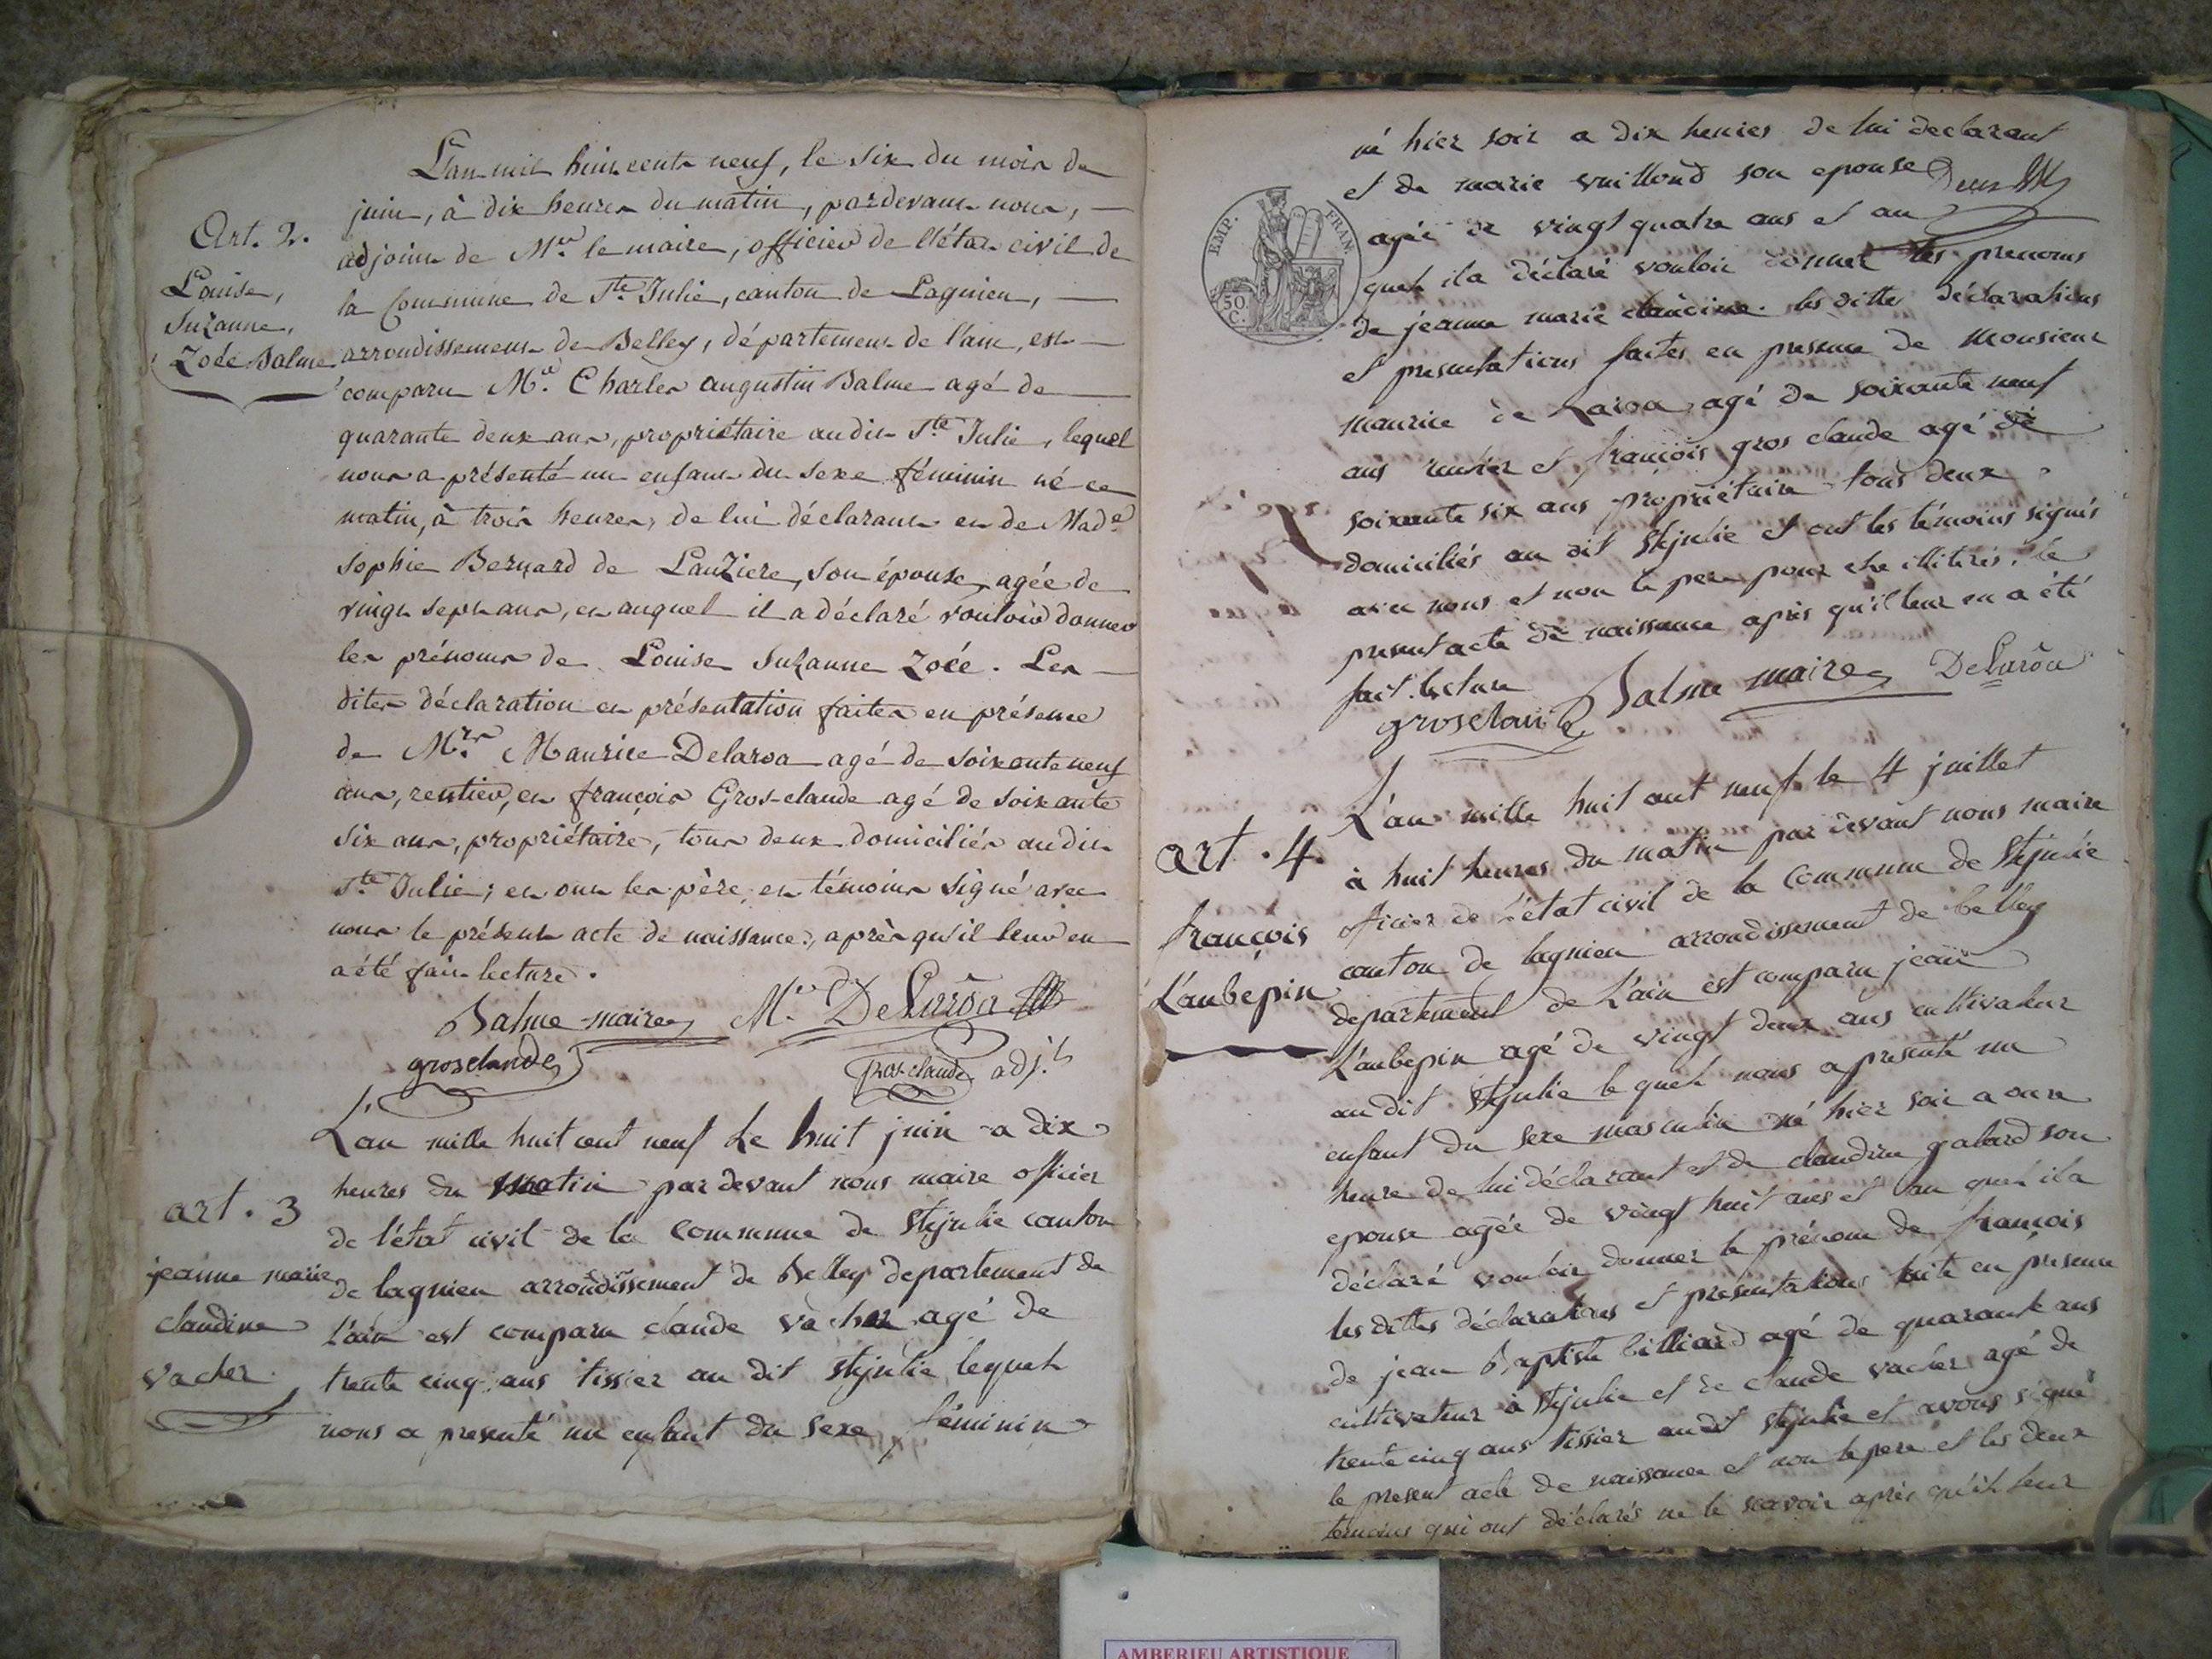 L'an mil huit cents neuf, le six du mois de
Art. 2.
juin, à dix heures du matin, pardevant nous,
adjoint de Mr. le maire, officier de l'état civil de
Louise,
la Commune de Ste. Julie, canton de Lagnieu,
Suzanne,
Zoée Balme
arrondissement de Belley, département de l'ain, est
comparu Mr. Charles augustin Balme agé de
quarante deux ans, propriétaire audit Ste Julie, lequel
nous a présenté un enfant du sexe féminin né ce
matin, à trois heures, de lui déclarant et de Made
Sophie Bernard de Lauziere, son épouse, agée de
vingt sept ans, et auquel il a déclaré vouloir donner
les prénoms de Louise Suzanne Zoée. Les
dites déclaration et présentation faites en présence
de Mrs. Maurice Delaroa agé de soixante neuf
ans, rentier, et françois Gros-claude agé de soixante
six ans, propriétaire, tous deux domiciliés audit
Ste Julie; et ont les père, et témoins signé avec
nous le présent acte de naissance, après qu'il leur en
a été fait lecture.
Balme maire Mce DeLarôa
grosclaude
grosclaude adj.t
L'an mille huit cent neuf Le huit juin a dix
heures du matin par devant nous maire officier
art. 3
de l'état civil de la commune de Stejulie canton
jeanne marie
de lagnieu arrondissement de Belley departement de
claudine
L'ain est comparu claude vacher agé de
vacher
trente cinq ans tissier au dit stejulie lequel
nous a presenté un enfant du sexe féminin
né hier soir a dix heures de lui declarant
et de marie vuillond son epouse
agée de vingt quatre ans et au
quel il a déclaré vouloir donner les prenoms
de jeanne marie claudine. les dittes déclarations
et presentations faites en presence de Monsieur
maurice de Laroa agé de soixante neuf
ans rentier et françois gros claude agé de
soixante six ans propriétaire tous deux
domiciliés au dit Stejulie et ont les témoins signés
avec nous et non le pere pour etre illitirés. le
present acte de naissance après qu'il leur en a été
fait lecture
Balme maire DeLarôa
grosclaude
EMP. FRAN.
50 C.
L'an mille huit cent neuf le 4 juillet
art. 4.
à huit heures du matin par devant nous maire
françois
officier de L'état civil de la commune de Stejulie
canton de lagnieu arrondissement de belley
L'aubepin
departement de L'ain est comparu jean
L'aubepin agé de vingt deux ans cultivateur
au dit Stejulie lequel nous a presenté un
enfant du sexe masculin né hier soir a onze
heure de lui déclarant et de claudine gabard son
epouse agée de vingt huit ans et au quel il a
déclaré vouloir donner le prénom de françois
les dittes déclarations et presentations faite en presence
de jean Baptiste billiard agé de quarante ans
cultivateur à Stejulie et de claude vacher agé de
trente cinq ans tissier audit Stejulie et avons signé
le present acte de naissance et non le pere et les deux
témoins qui ont déclarés ne le scavoir après qu'il leur
AMBERIEU ARTISTIQUE